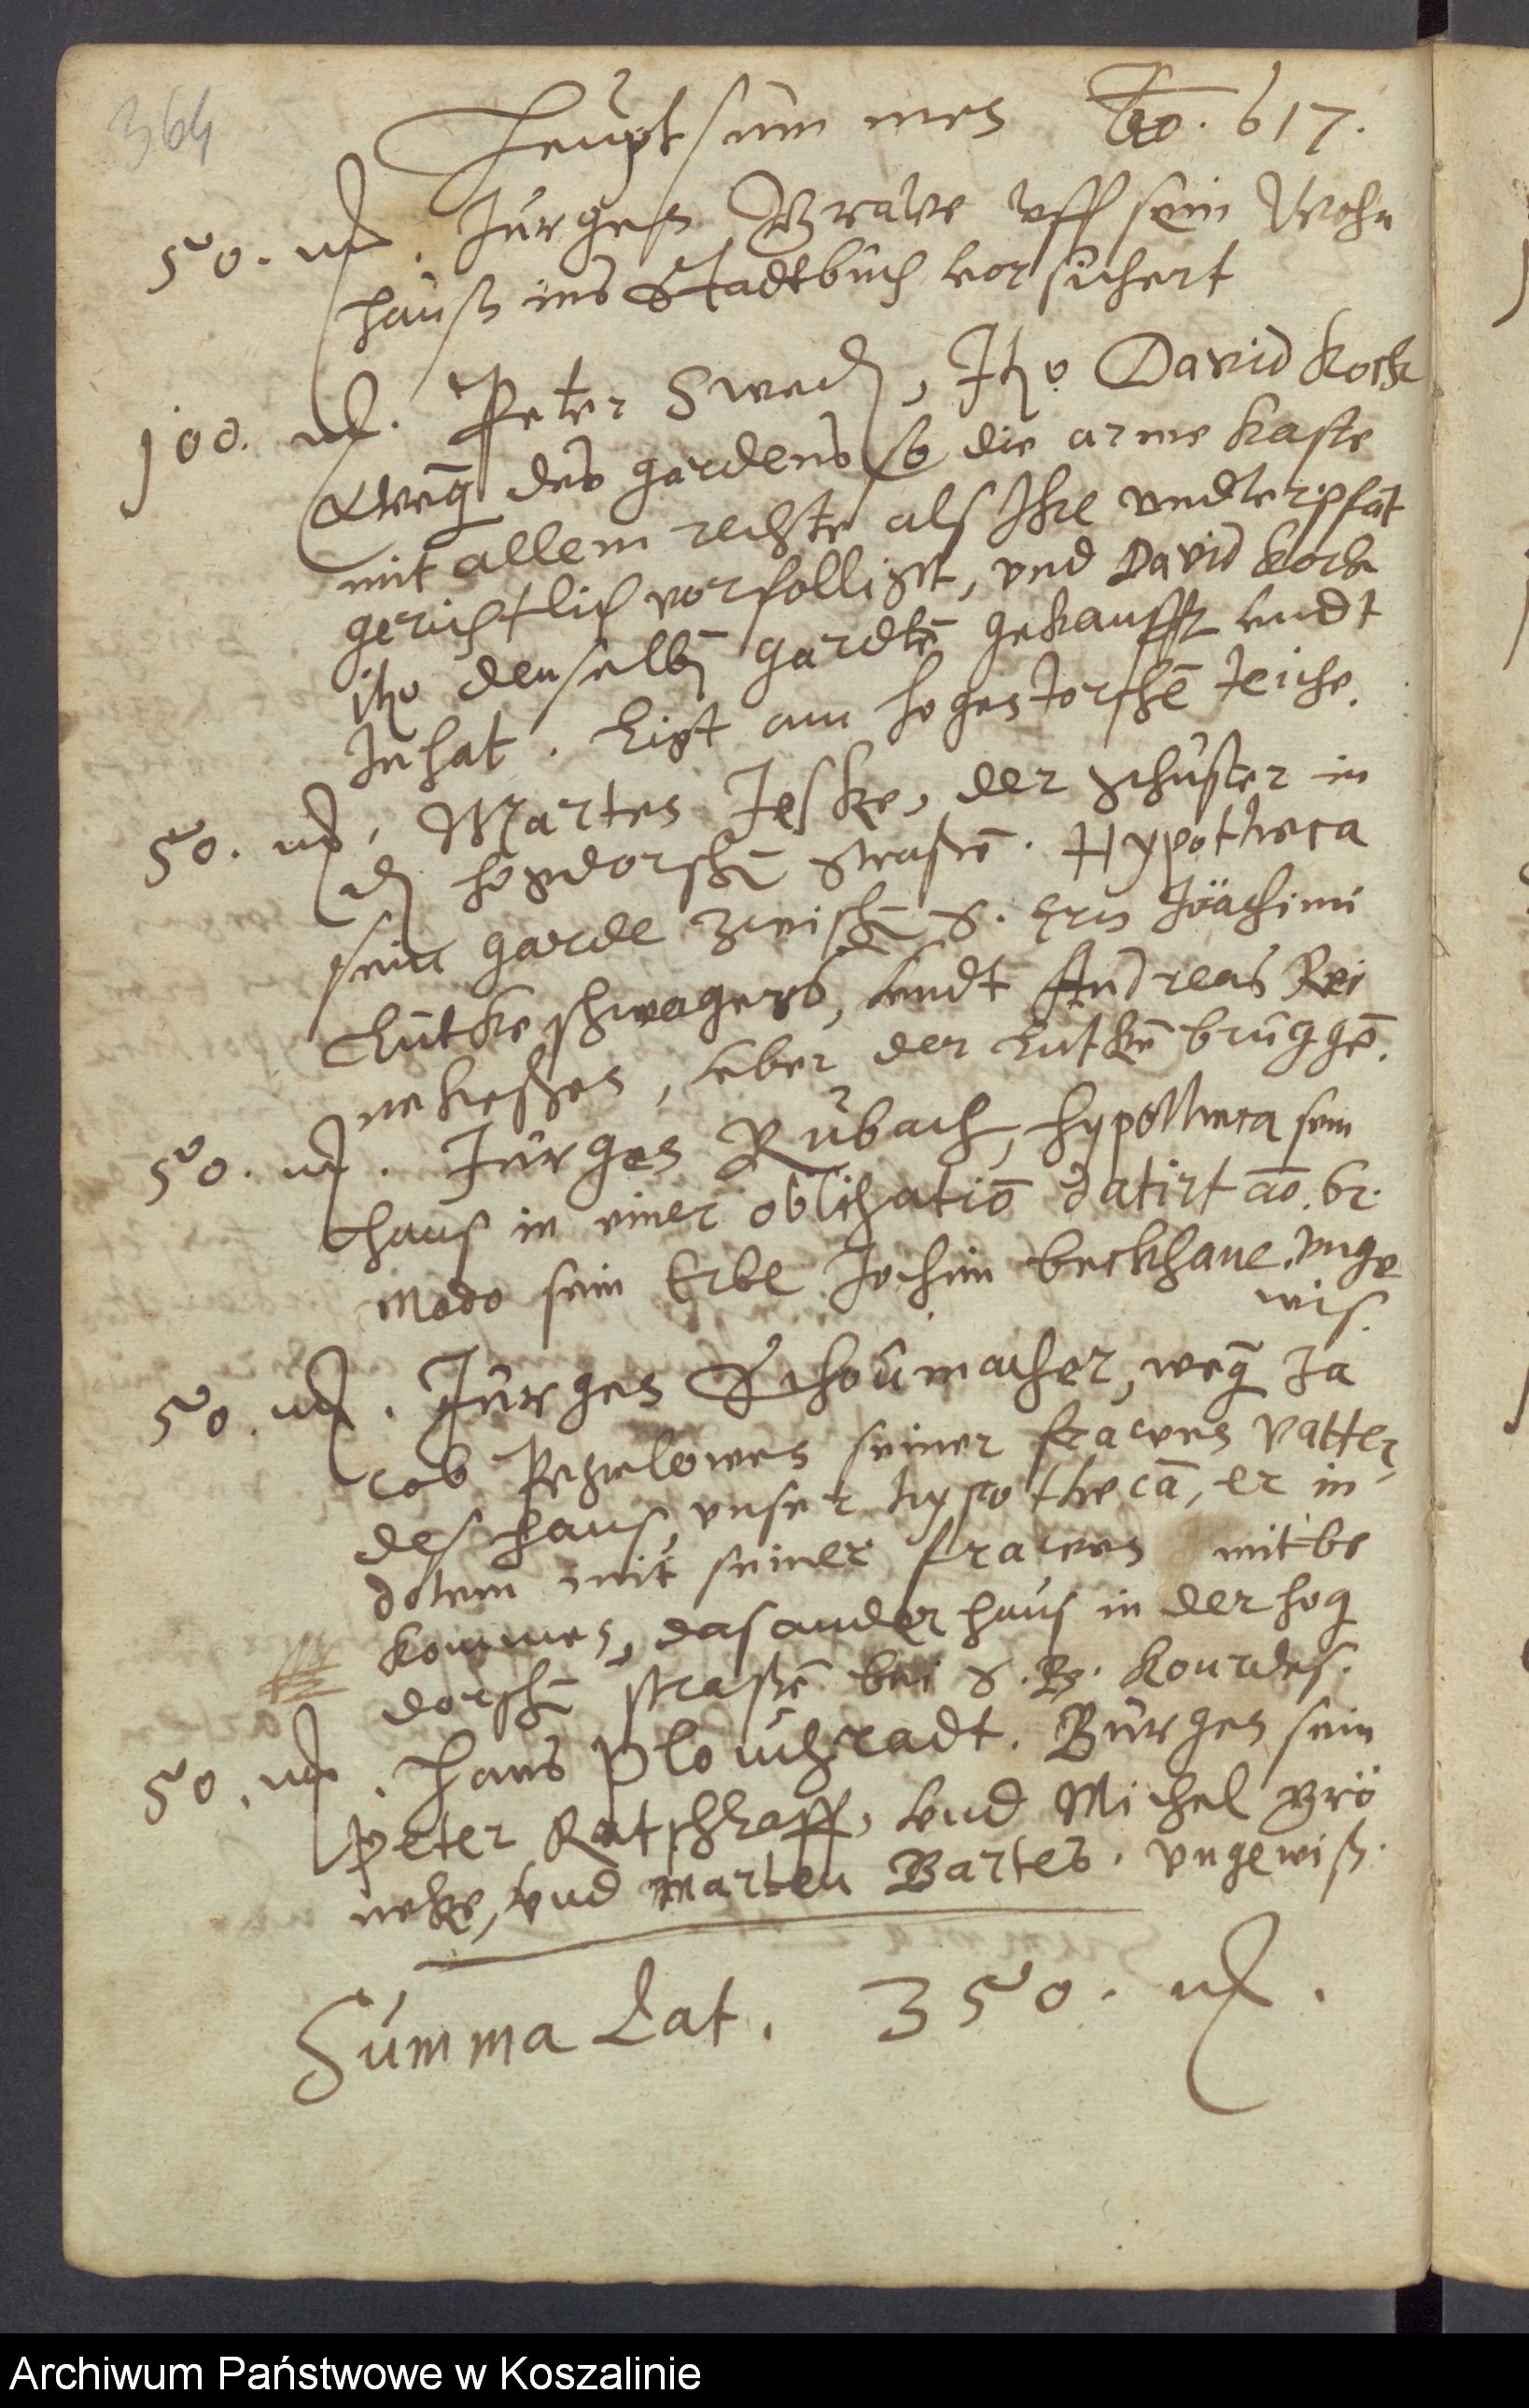 364
Heuptsummen Ao. 617.
50. mk. Jurgen Grawe vff sein Wohn
hauß ins Stadtbuch vorsichert
100. mk. Peter Swed, Itzo David Kock
weg des gardens so die arme Kaste
mit allem rechte als Ihre vndterpfat
gerichtlich vorfolliget, vnd David Kock
itzo denselbē gardtē gekaufft vndt
Inhat. Ligt am hogestorschē teiche.
50. mk. Marten Jeske, der schuster in
d hogedorschē straßē. Hypotheca
sein garde zwischē S. Ern Joachimi
Lutkeschwagers, vndt Andreas Rei
nekeßen, vber der Lutkē bruggē.
50. mk. Jurgen Rubach, hypotheca sein
hauß in einer obligatiō datirt aō. 61.
Modo sein Erbe Jochim Beckhane. vnge
wis.
50. mk. Jurgen Schoumacher, weg Ja
cob seiner frawen Vatter,
des hauß, vnser hypothecā, er in
dotem mit seiner frawen mitbe
kommen, das ander hauß in der hog
dorschē straßē bei S. B. Kourdes.
50. mk. Hans Plouchradt. Burgen sein
Peter Ratschlaff, vnd Michel Brö
neke, vnd Marten Bartes. vngewiß.
Summa Lat. 350. mk.
Archiwum Państwowe w Koszalinie